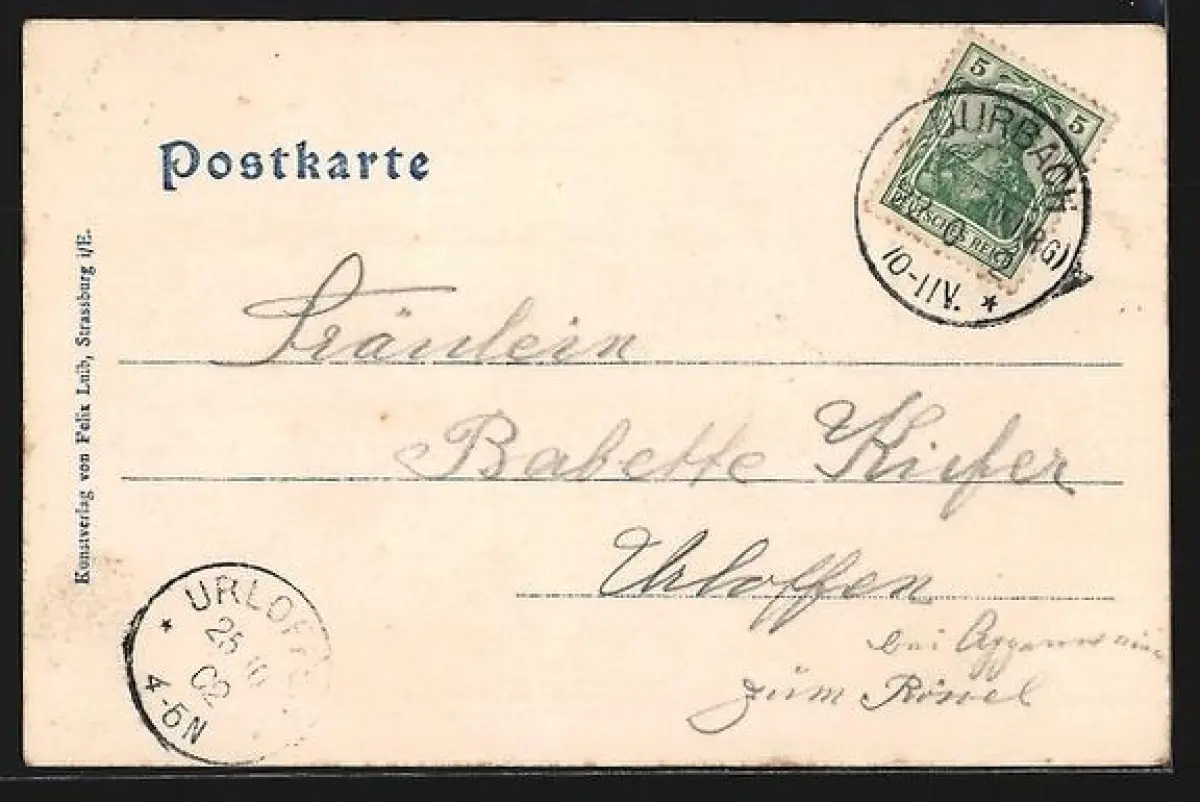 Postkarte
5 5
DEUTSCHES REICH
URBACH
10-11V. *
Kunstverlag von Felix Luib, Strassburg i/E.
Fräulein
Babette Kiefer
Urloffen
bei
zum Rössel
* URLOFF
25 10
4-5N